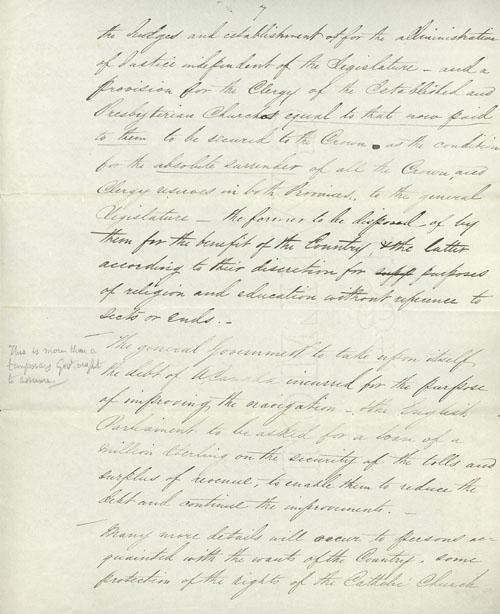 7
the Judges and establishment of for the administration
of Justice independent of the Legislature - and a
provision for the Clergy of the Established and
Presbyterian Churches equal to that now paid
to them to be secured to the Crown as the condition
for the absolute surrender of all the Crown and
Clergy reserves in both Provinces, to the general
Legislature - the former to be disposed of by
them for the benefit of the Country, & the latter
according to their discretion for purposes
of religion and education without reference to
Sects or ends. -
This is more than a
temporary Govt. right
to assume.
The general Government to take upon itself
the debt of U Canada incurred for the purpose
of improving the navigation - the English
Parliament to be asked for a loan of a
million Sterling on the security of the tolls and
surplus of revenue, to enable them to reduce the
debt and continue the improvements. -
Many more details will occur to persons ac-
quainted with the wants of the Country. some
protection of the rights of the Catholic Church